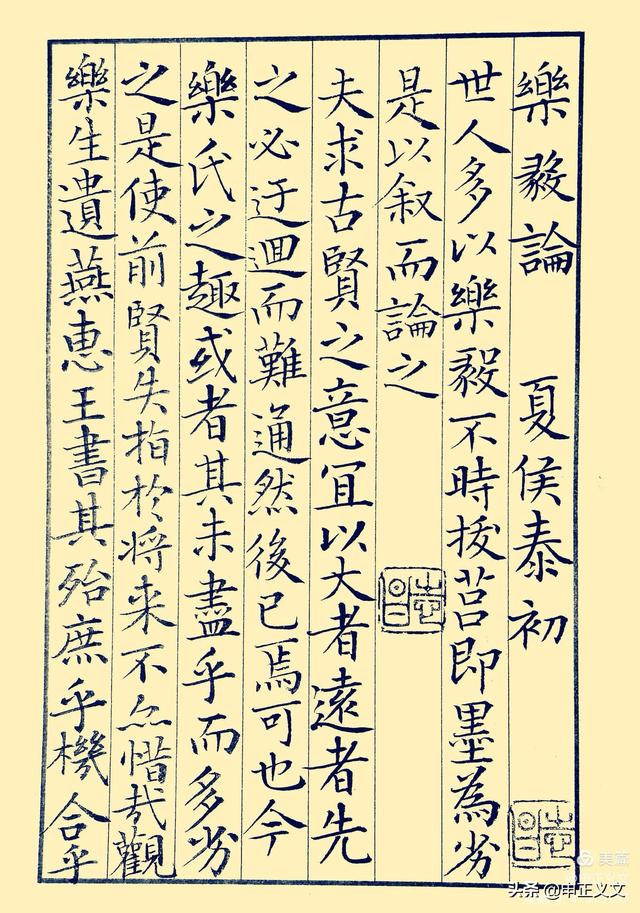 樂毅論 夏侯泰初
世人多以樂毅不時拔莒即墨為劣
是以叙而論之
夫求古賢之意宜以大者遠者先
之必迂迴而難通然後已焉可也今
樂氏之趣或者其未盡乎而多劣
之是使前賢失指於將来不亦惜哉觀
樂生遺燕惠王書其殆庶乎機合乎
美篇
头条 @中正义文